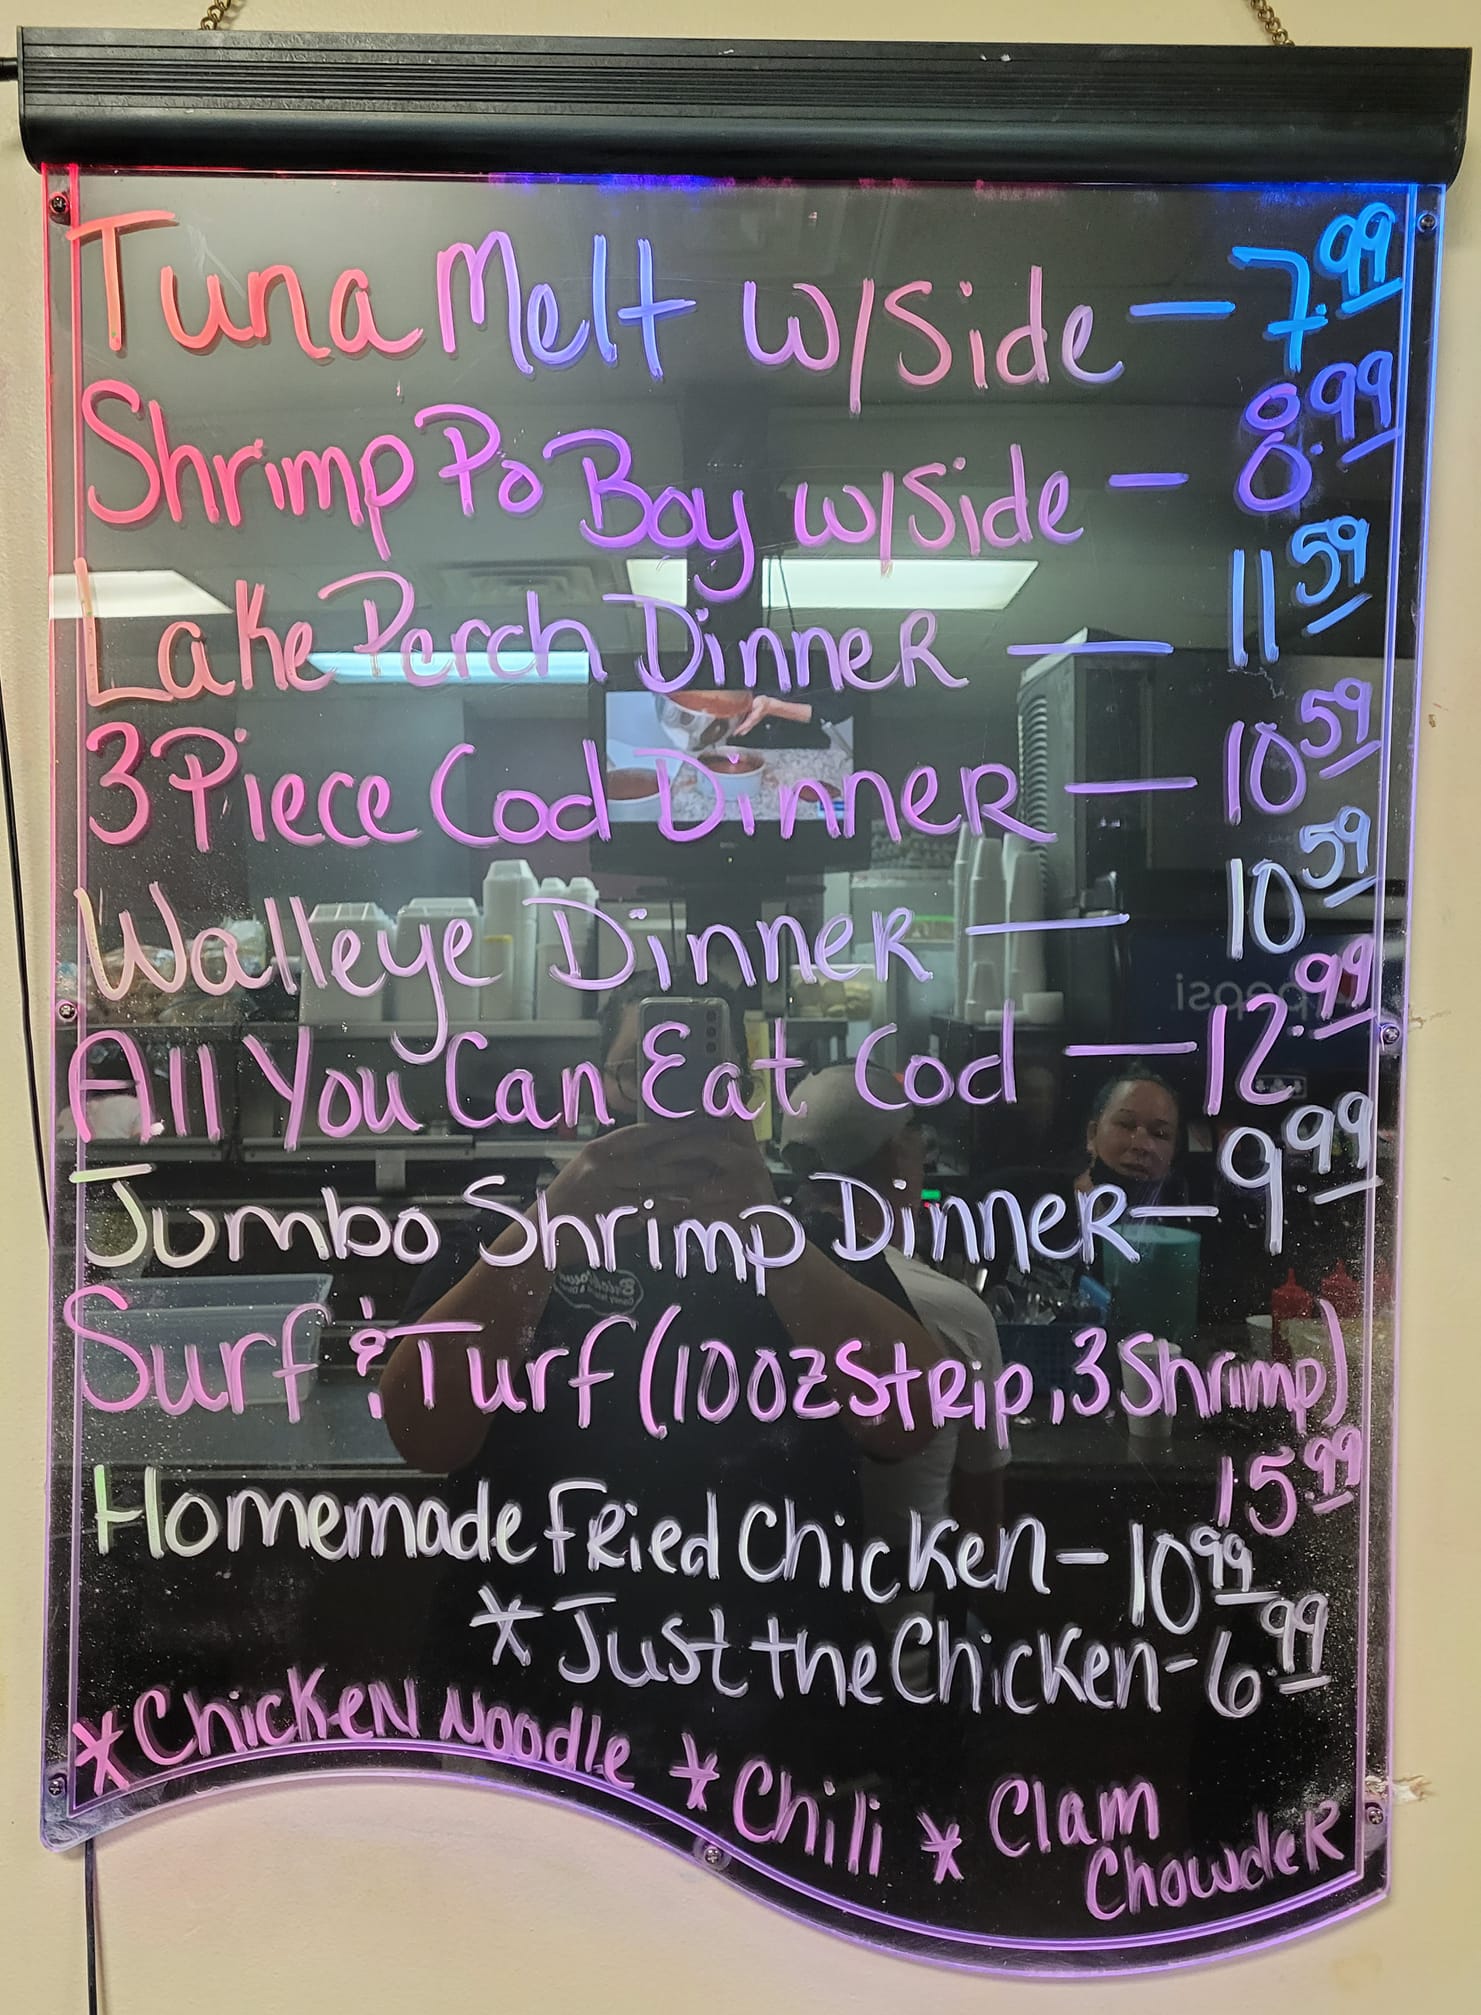 Tuna Melt w/Side — 7.99
Shrimp Po Boy w/Side — 8.99
Lake Perch Dinner — 11 59
3 Piece Cod Dinner — 10 59
Walleye Dinner — 10 59
All You Can Eat Cod — 12.99
Jumbo Shrimp Dinner — 9.99
Surf & Turf (10oz Strip, 3 Shrimp)
15.99
Homemade Fried Chicken — 10 99
* Just the Chicken - 6.99
* Chicken Noodle * Chili * Clam
Chowder
pepsi